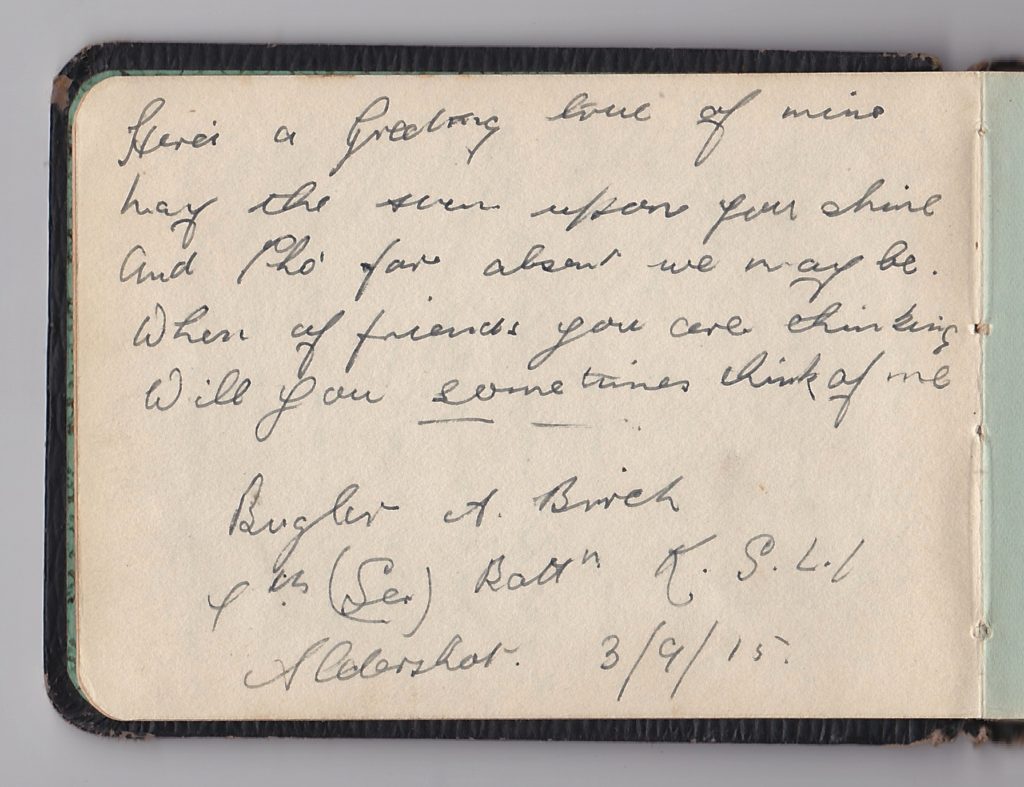 Here's a Greeting true of mine
May the sun upon you shine
And Tho' far absent we may be.
When of friends you are thinking
Will you sometimes think of me
Bugler A. Birch
th (Ser) Battn K. S. L. I
Aldershot. 3/9/15.